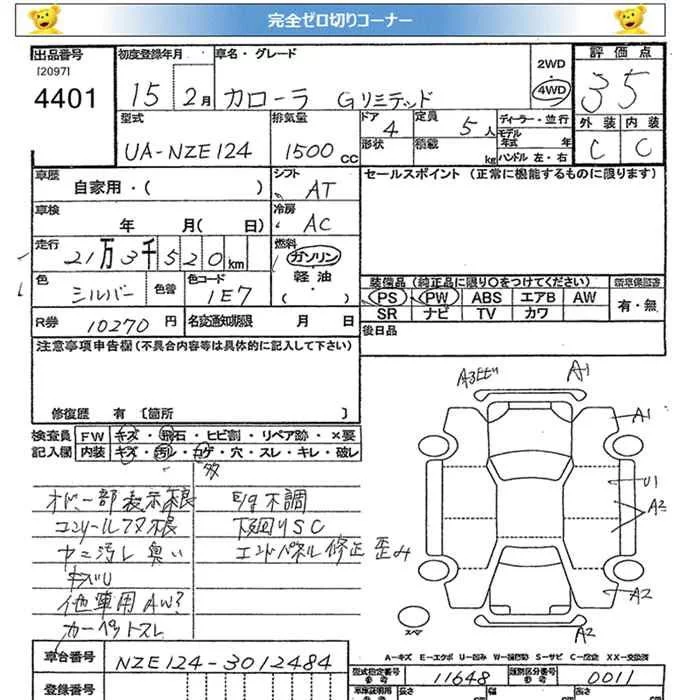 完全ゼロ切りコーナー
出品番号 初度登録年月 車名・グレード 2WD 評価点
[2097]
4401 15 2月 カローラ Gリミテッド 4WD 35
型式 排気量 ドア 定員 ディーラー・並行 外装 内装
UA-NZE124 1500cc 4 5人 モデル年式 年 C C
形状 積載 kg ハンドル 左・右
車歴 シフト セールスポイント (正常に機能するものに限ります)
自家用・( ) AT
車検 年 月( 日) 冷房 AC
走行 21万3千520km 燃料 ガソリン
色 シルバー 色替 色コード 1E7 軽油 ・( )
装備品 (純正品に限り○をつけてください) 新車保証書
PS PW ABS エアB AW 有・無
SR ナビ TV カワ
R券 10270円 名変通知期限 月 日 後日品
注意事項申告欄(不具合内容等は具体的に記入して下さい)
修復歴 有 [箇所 ]
検査員 FW キズ・飛石・ヒビ割・リペア跡・×要
記入欄 内装 キズ・汚レ・コゲ・穴・スレ・キレ・破レ
多
オドー部表示不良 E/g不調
コンソールフタ不良 下回りSC
ヤニ汚レ臭い エンドパネル修正歪み
キバU
他車用AW?
カーペットスレ
A3ビビ A1
A1
U1
A2
A2
スペア A2
A-キズ E-エクボ U-凹み W-補修跡 S-サビ C-腐蝕 XX-交換済
車台番号 NZE124-3012484 型式指定番号 参考 11648 類別区分番号 参考 0011
登録番号 車庫証明用 参考 長さ 幅 高さ